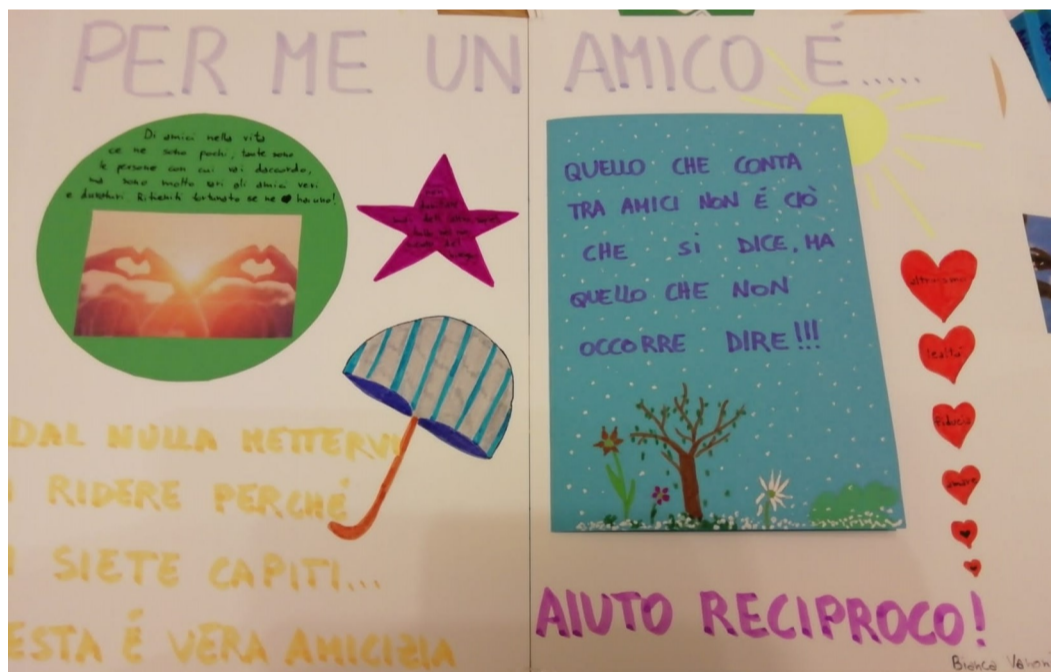 PER ME UN AMICO É.....
Di amici nella vita
ce ne sono pochi, tante sono
le persone con cui vai daccordo,
ma sono molto rari gli amici veri
e duraturi. Ritieniti fortunato se ne hai uno!
QUELLO CHE CONTA
TRA AMICI NON É CIÒ
CHE SI DICE, MA
QUELLO CHE NON
OCCORRE DIRE!!!
altruismo
lealtà
fiducia
amore
DAL NULLA METTERVI
RIDERE PERCHÉ
SIETE CAPITI...
ESTA É VERA AMICIZIA
AIUTO RECIPROCO!
Bianca